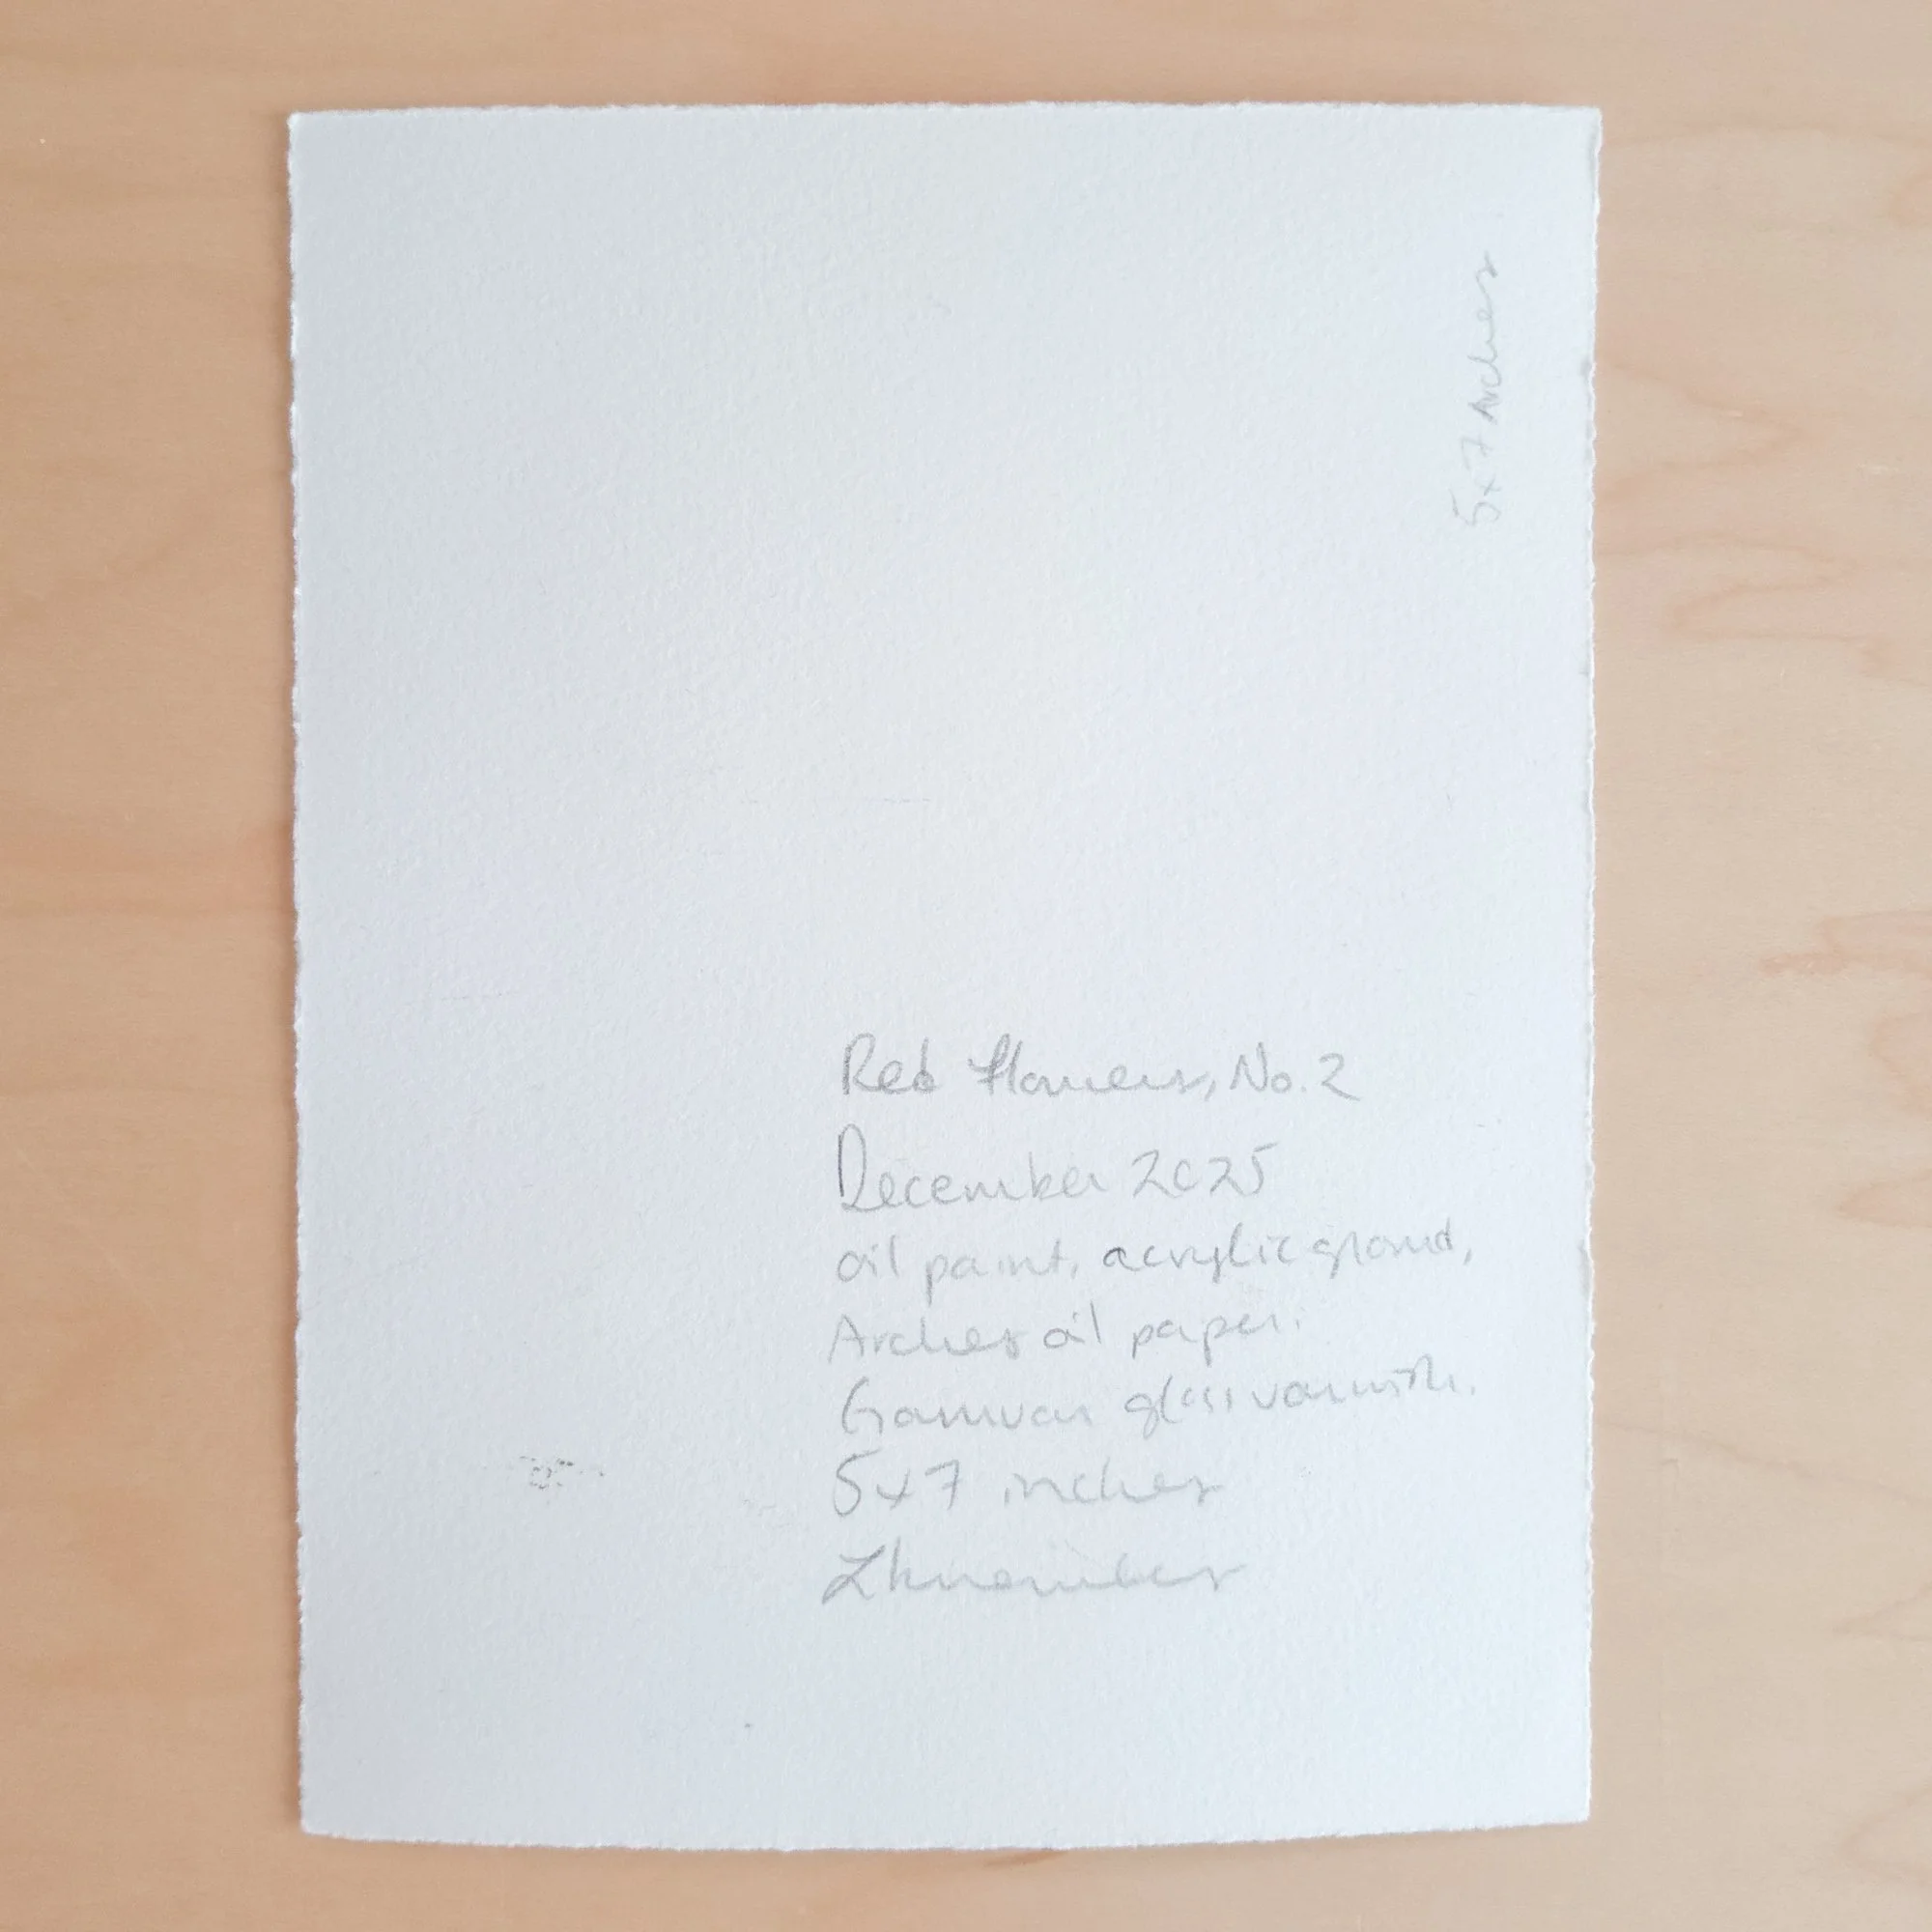 5x7 Arches
Red Flowers, No. 2
December 2025
oil paint, acrylic ground,
Arches oil paper.
Gamvar gloss varnish.
5x7 inches